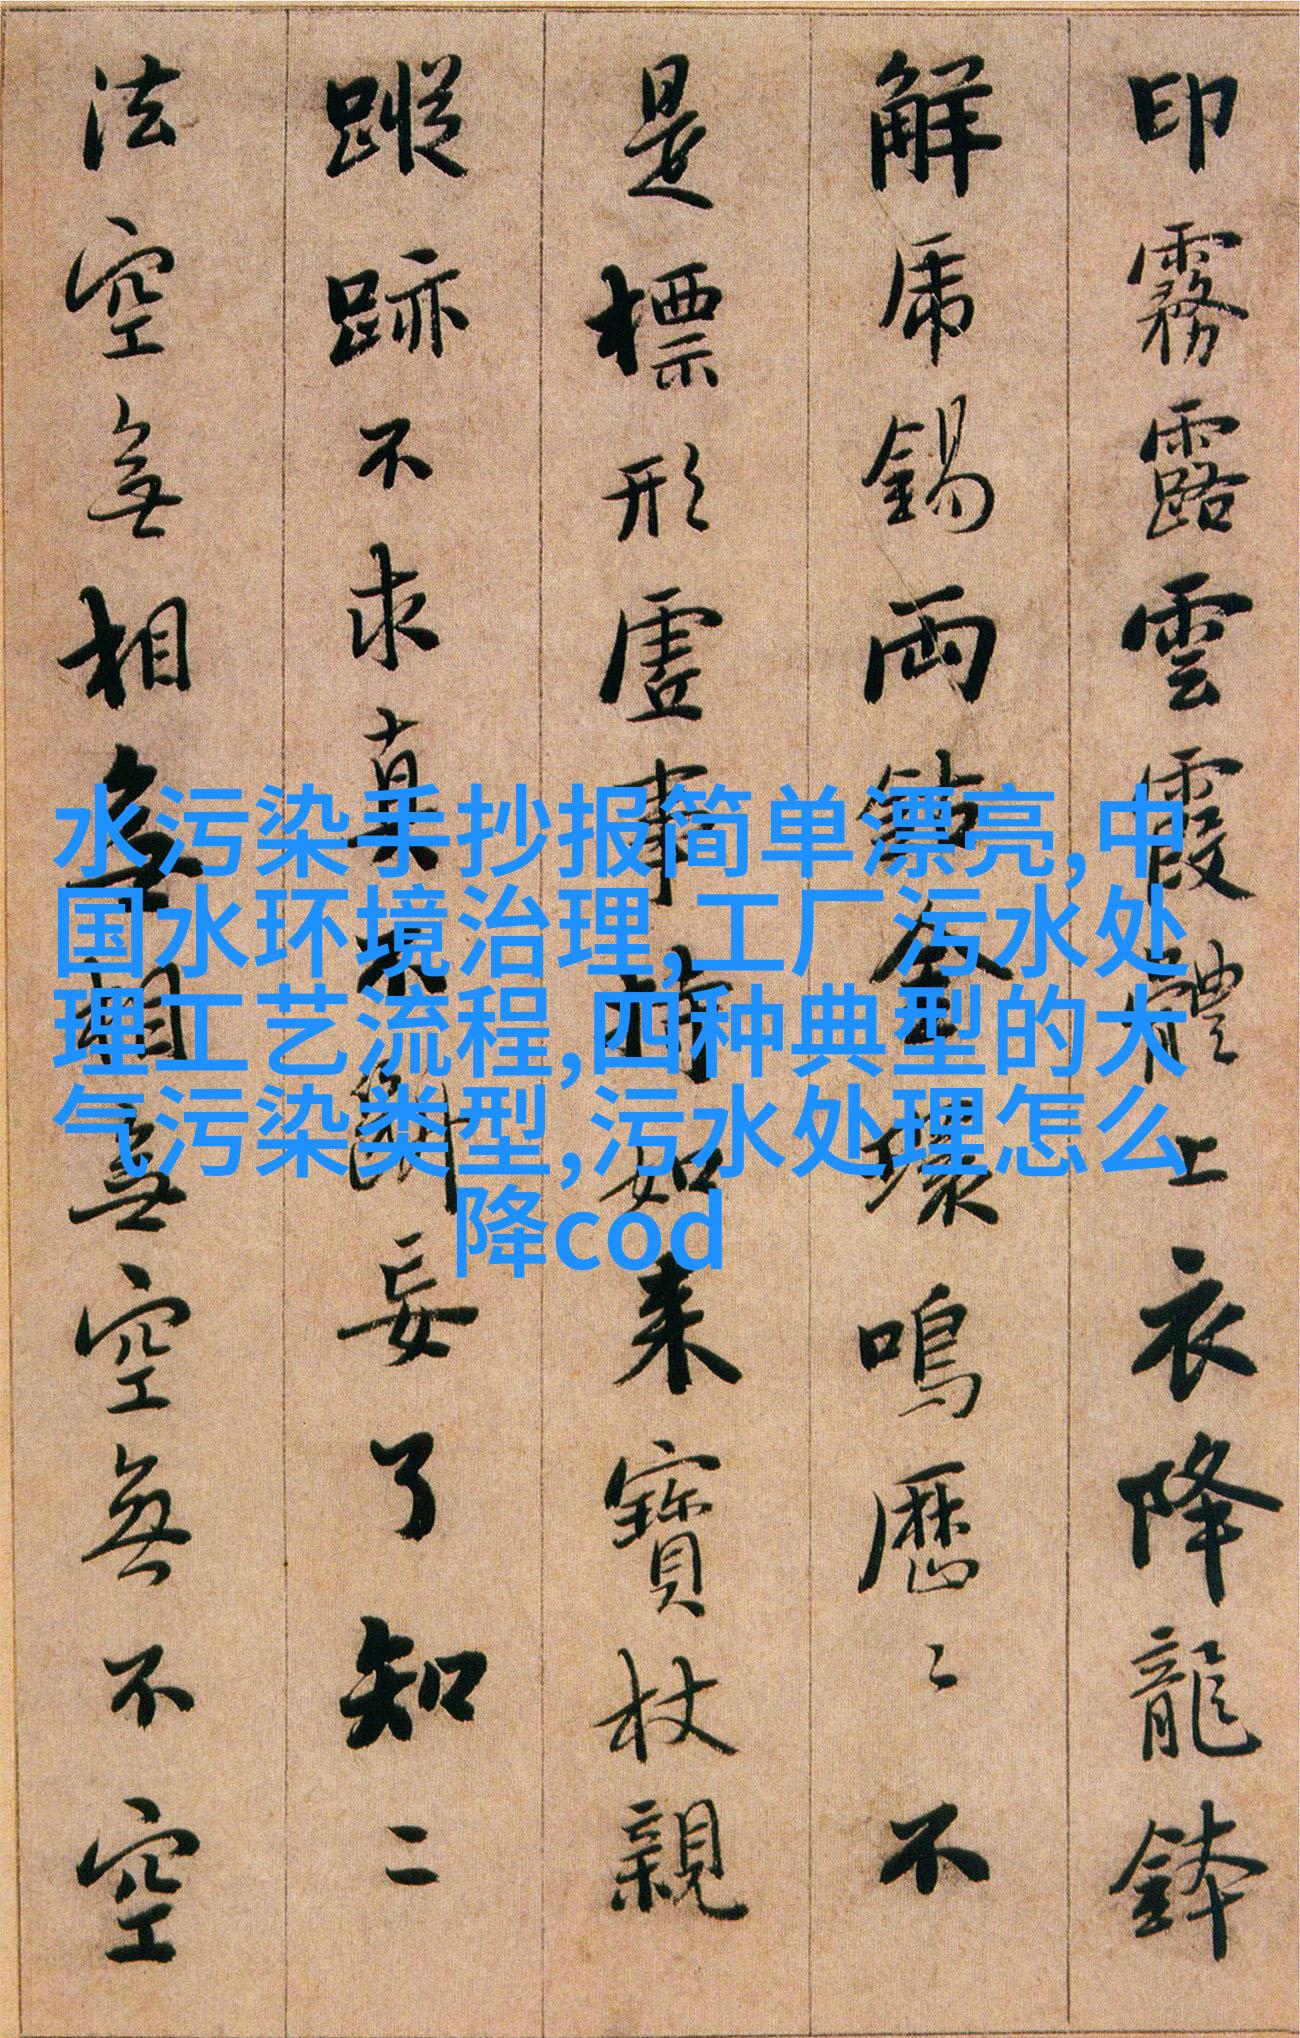 印霧露雲霞體上衣降龍鉢
解虎錫兩鈷金環鳴歷〻不
是標形虛事持如來寶杖親
蹤跡不求真不斷妄了知二
法空無相無相無空無不空
水污染手抄报简单漂亮,中
国水环境治理,工厂污水处
理工艺流程,四种典型的大
气污染类型,污水处理怎么
降cod